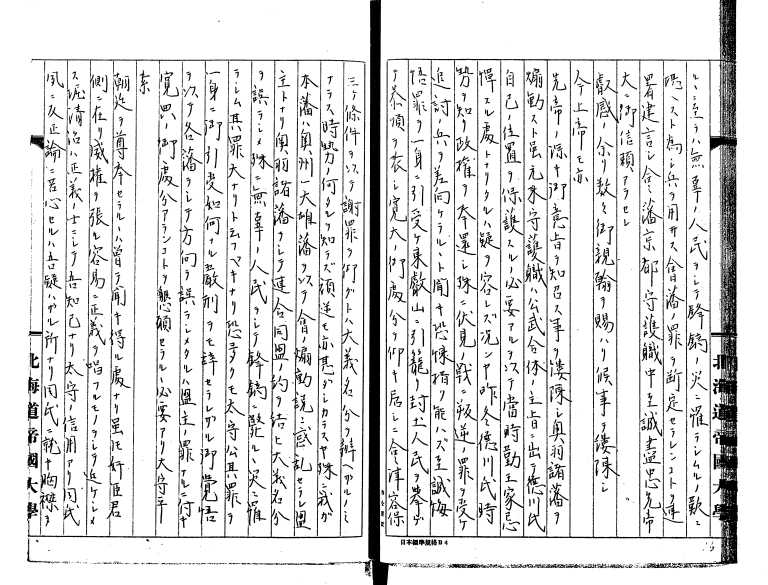 ルニ至テハ無辜ノ人民ヲシテ鋒鏑ノ災ニ罹ラシムルノ歎ニ
堪ヘスト為シ兵ヲ用ヰス會藩ノ罪ヲ断定セラレンコトヲ連
署建言シ會藩京都守護職中至誠盡忠先帝
大ニ御信頼アラセレ
叡感ノ余リ数々御親翰ヲ賜ハリ候事ヲ縷陳シ
今上帝モ亦
先帝ノ深キ御意旨ヲ知召ス事ヲ縷陳シ奥羽諸藩ヲ
煽動スト虽元来守護職ハ公武合体ノ主旨ニ出テ徳川氏
自己ノ位置ヲ保護スルノ必要アルヲ以テ當時勤王家忌
憚スル處トナリタルハ疑ヲ容レズ況ンヤ昨冬徳川氏時
勢ヲ知ヲ政権ヲ奉還シ殊ニ伏見ノ戦ニ叛逆ノ罪ヲ受ケ
追討ノ兵ヲ差向ケラルヽト聞キ恐悚措ク能ハズ至誠悔
悟罪ヲ一身ニ引受ケ東叡山ニ引籠リ封土人民ヲ挙ゲ
テ恭順ヲ表シ寛大ノ御處分ヲ仰キ居シニ会津容保
北海道帝國大學
日本標準規格B4
三ケ條件ヲ以テ謝罪ヲ御グトハ大義名分ヲ辨ヘザルノミ
ナラス時勢ノ何タルヲ知ラズ頑迷モ亦甚シカラスヤ殊ニ我ガ
本藩ハ奥州ノ大雄藩ヲ以テ會ノ煽動説ニ惑乱セラレ盟
主トナリ奥羽諸藩ヲシテ連合同盟ノ約ヲ結ヒ大義名分
ヲ誤ラシメ殊ニ無辜ノ人民ヲシテ鋒鏑ニ斃ルノ災ニ罹
ラシム其罪大ナリト云フベキナリ恐多クモ太守公其罪ヲ
一身ニ御引受如何ナル嚴刑ヲモ辞セラレザル御覚悟
ヲ以テ各藩ヲシテ方向ヲ誤ラシメタルハ盟主ノ罪アルニ付キ
寛典ノ御處分アランコトヲ懇願セラルヽ必要アリ太守平
素
朝廷ヲ尊奉セラルヽハ曽テ聞キ得ル處ナリ虽モ奸臣君
側ニ在リ威権ヲ張ル容易ニ正義ヲ唱フルモノヲシテ近ケシメ
ス堀清治ハ正義ノ士ニシテ吾知己ナリ太守ノ信用アリ同氏
夙ニ反正論ニ苦心セルハ吾疑ハザル所ナリ同氏ニ就キ胸襟ヲ
北海道帝國大學